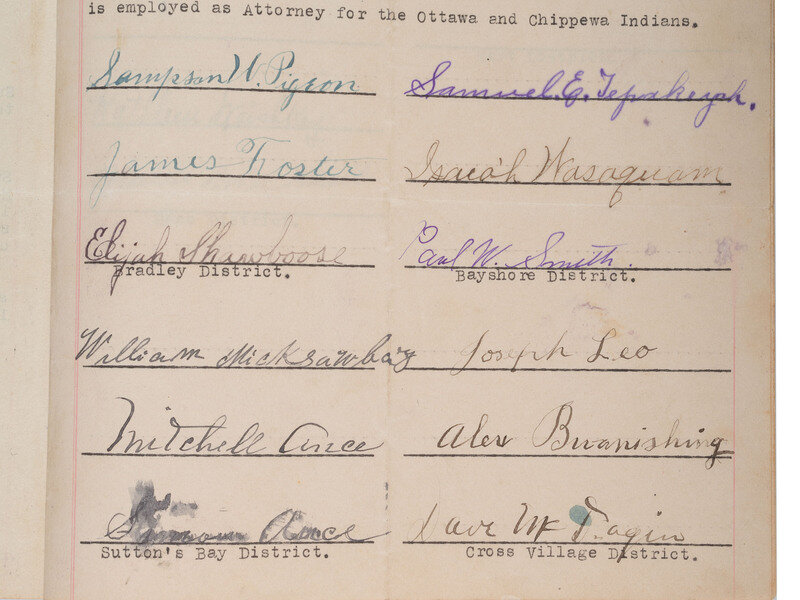 is employed as Attorney for the Ottawa and Chippewa Indians.
Sampson W. Pigeon
Samuel. E. Tepakeyah.
James Foster
Isaiah Wasaquam
Elijah Shawboose
Bradley District.
Paul W. Smith.
Bayshore District.
William Micksawbay
Joseph Leo
Mitchell Ance
Alex Bwanishing
Ance
Sutton's Bay District.
Dave
Cross Village District.